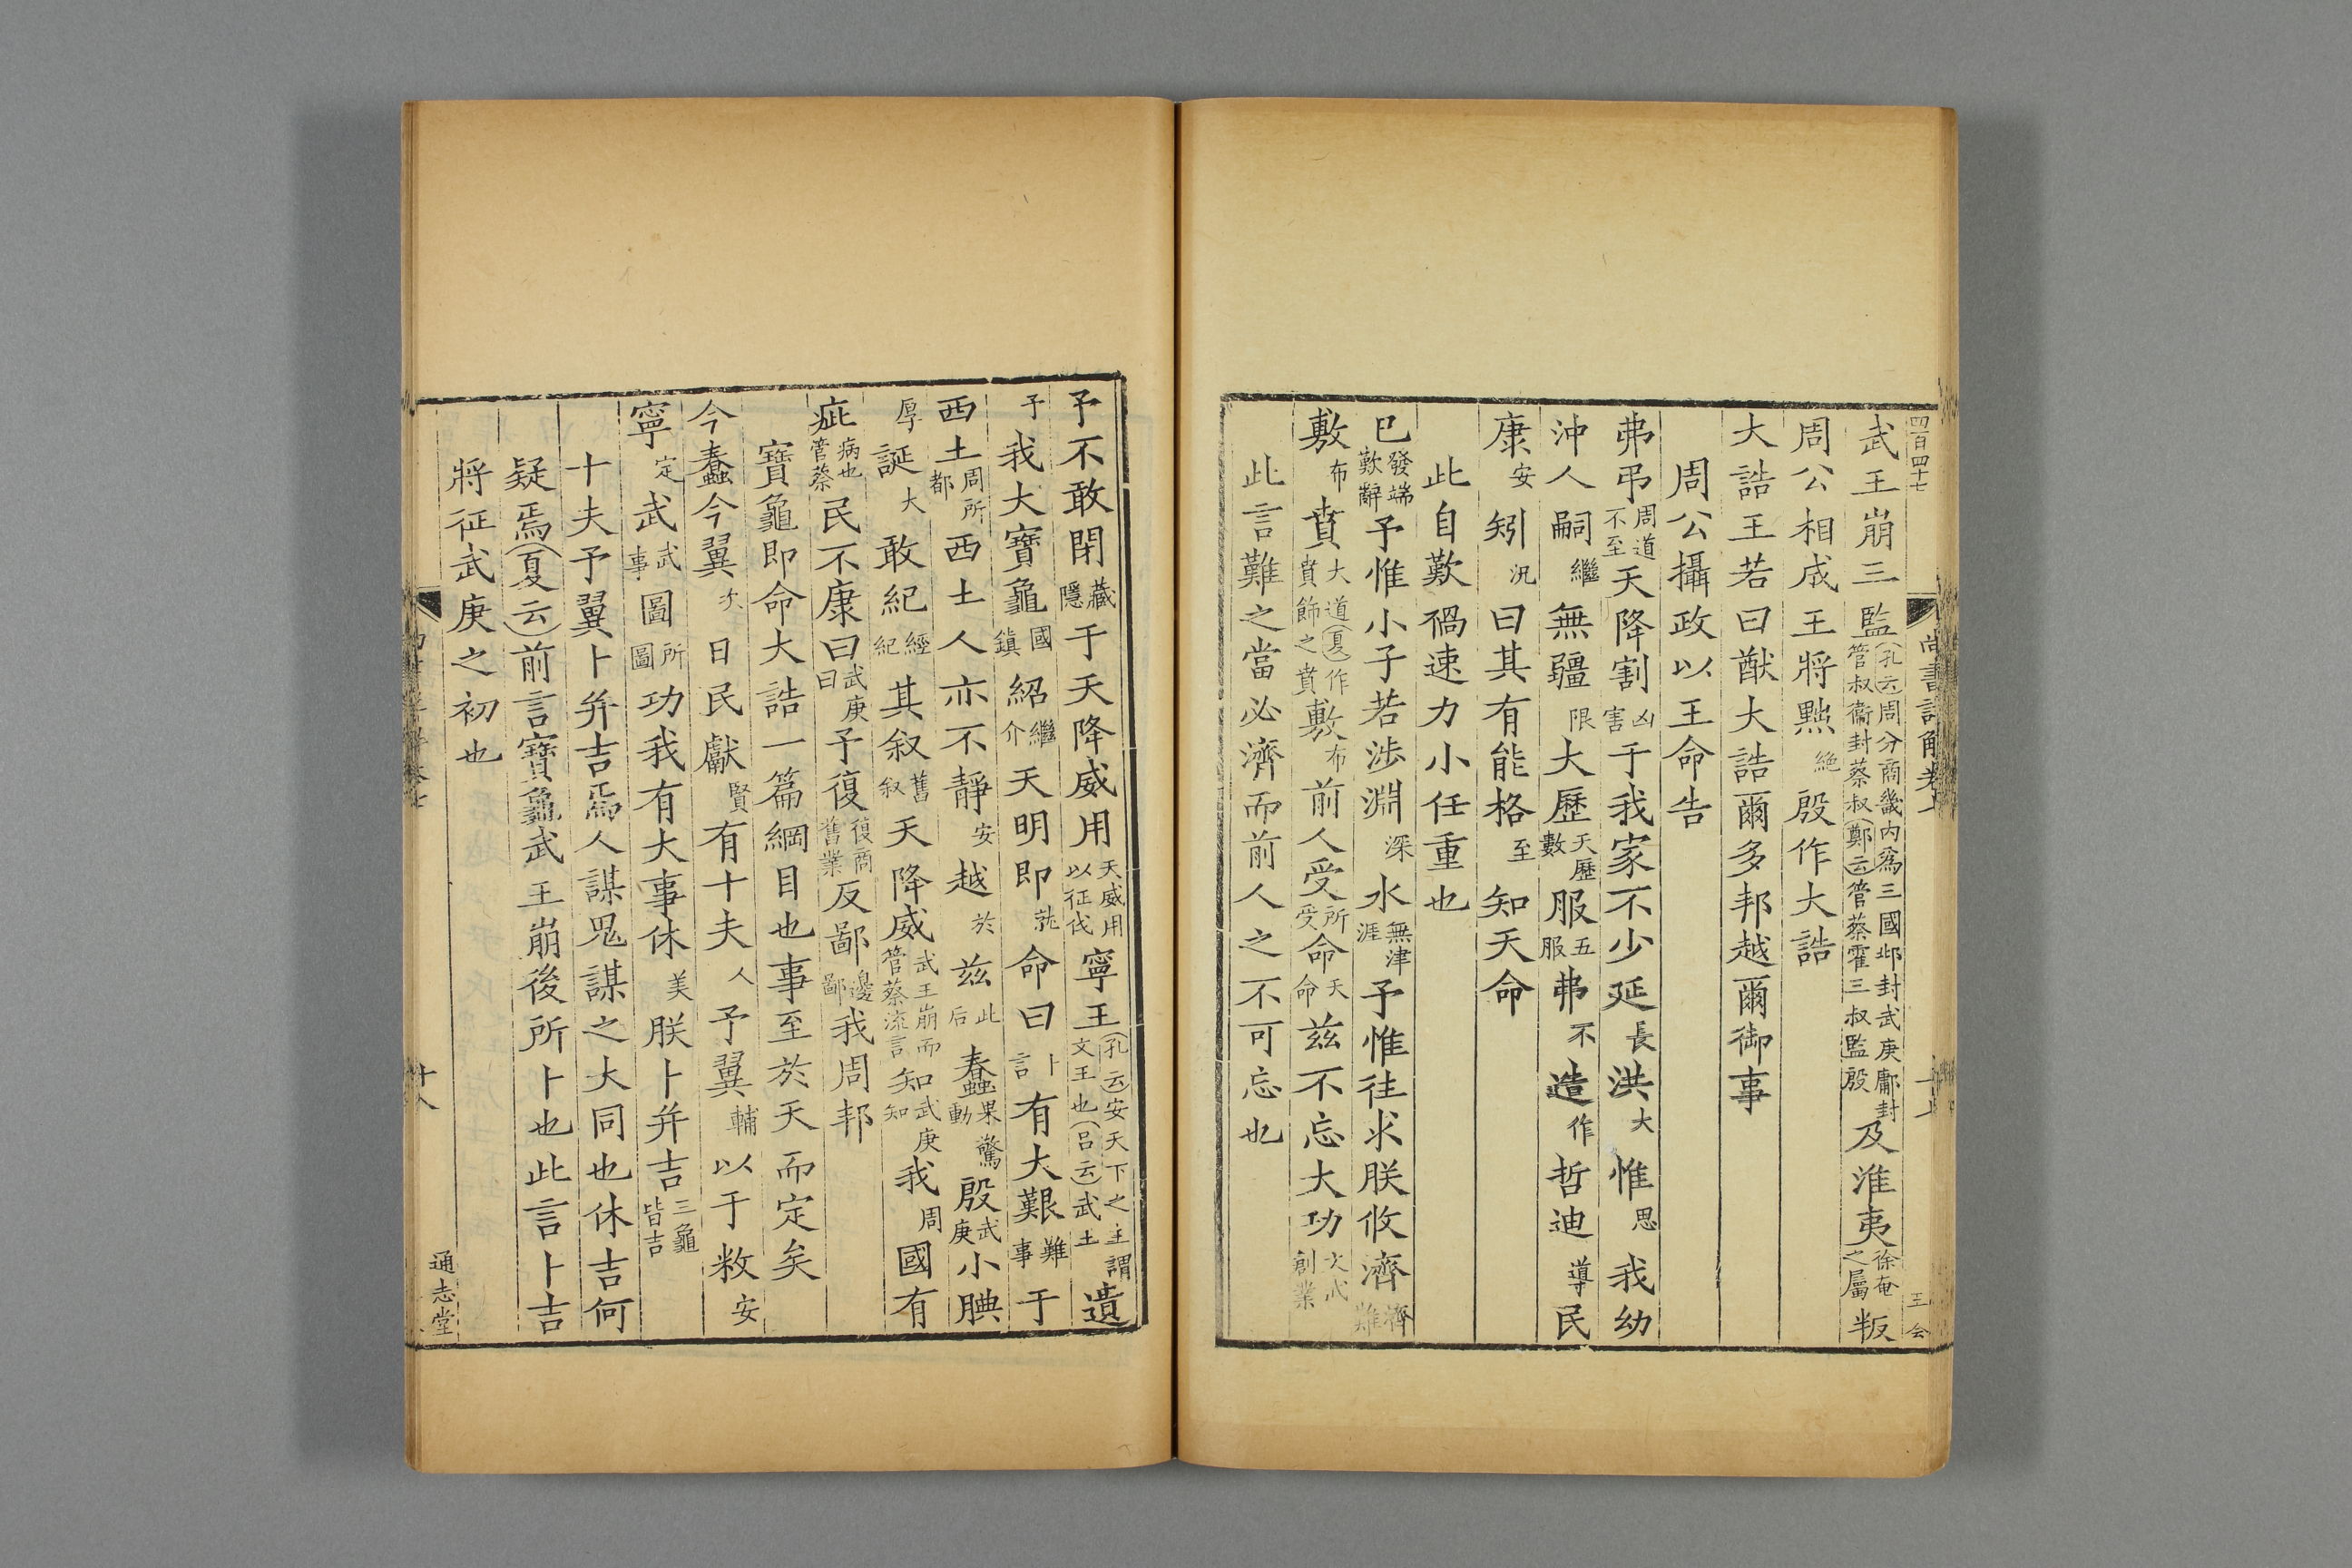 四百四十七
武王崩三監孔云周分商畿内爲三國邶封武庚鄘封管叔衞封蔡叔鄭云管蔡霍三叔監殷及淮夷徐奄之屬叛
周公相成王將黜絶殷作大誥
大誥王若曰猷大誥爾多邦越爾御事
周公攝政以王命告
弗弔周道不至天降割凶害于我家不少延長洪大惟思我幼
沖人嗣繼無疆限大歷天歷數服五服弗不造作哲迪導民
康安矧況曰其有能格至知天命
此自歎禍速力小任重也
已發端歎辭予惟小子若涉淵深水無津涯予惟往求朕攸濟濟難
敷布賁大道夏作賁飾之賁敷布前人受所受命天命茲不忘大功文武創業
此言難之當必濟而前人之不可忘也
予不敢閉藏隱于天降威用天威用以征伐寧王孔云安天下之主謂文王也呂云武王遺
予我大寶龜國鎮紹繼介天明即就命曰卜言有大艱難事于
西土周所都西土人亦不靜安越於茲此后蠢果驚動殷武庚小腆
厚誕大敢紀經紀其叙舊叙天降威武王崩而管蔡流言知武庚知我周國有
疵病也管蔡民不康曰武庚曰予復復商舊業反鄙邊鄙我周邦
寶龜即命大誥一篇綱目也事至於天而定矣
今蠢今翼次日民獻賢有十夫人予翼輔以于敉安
寧定武武事圖所圖功我有大事休美朕卜并吉三龜皆吉
十夫予翼卜并吉焉人謀鬼謀之大同也休吉何
疑焉夏云前言寶龜武王崩後所卜也此言卜吉
將征武庚之初也
十八
通志堂